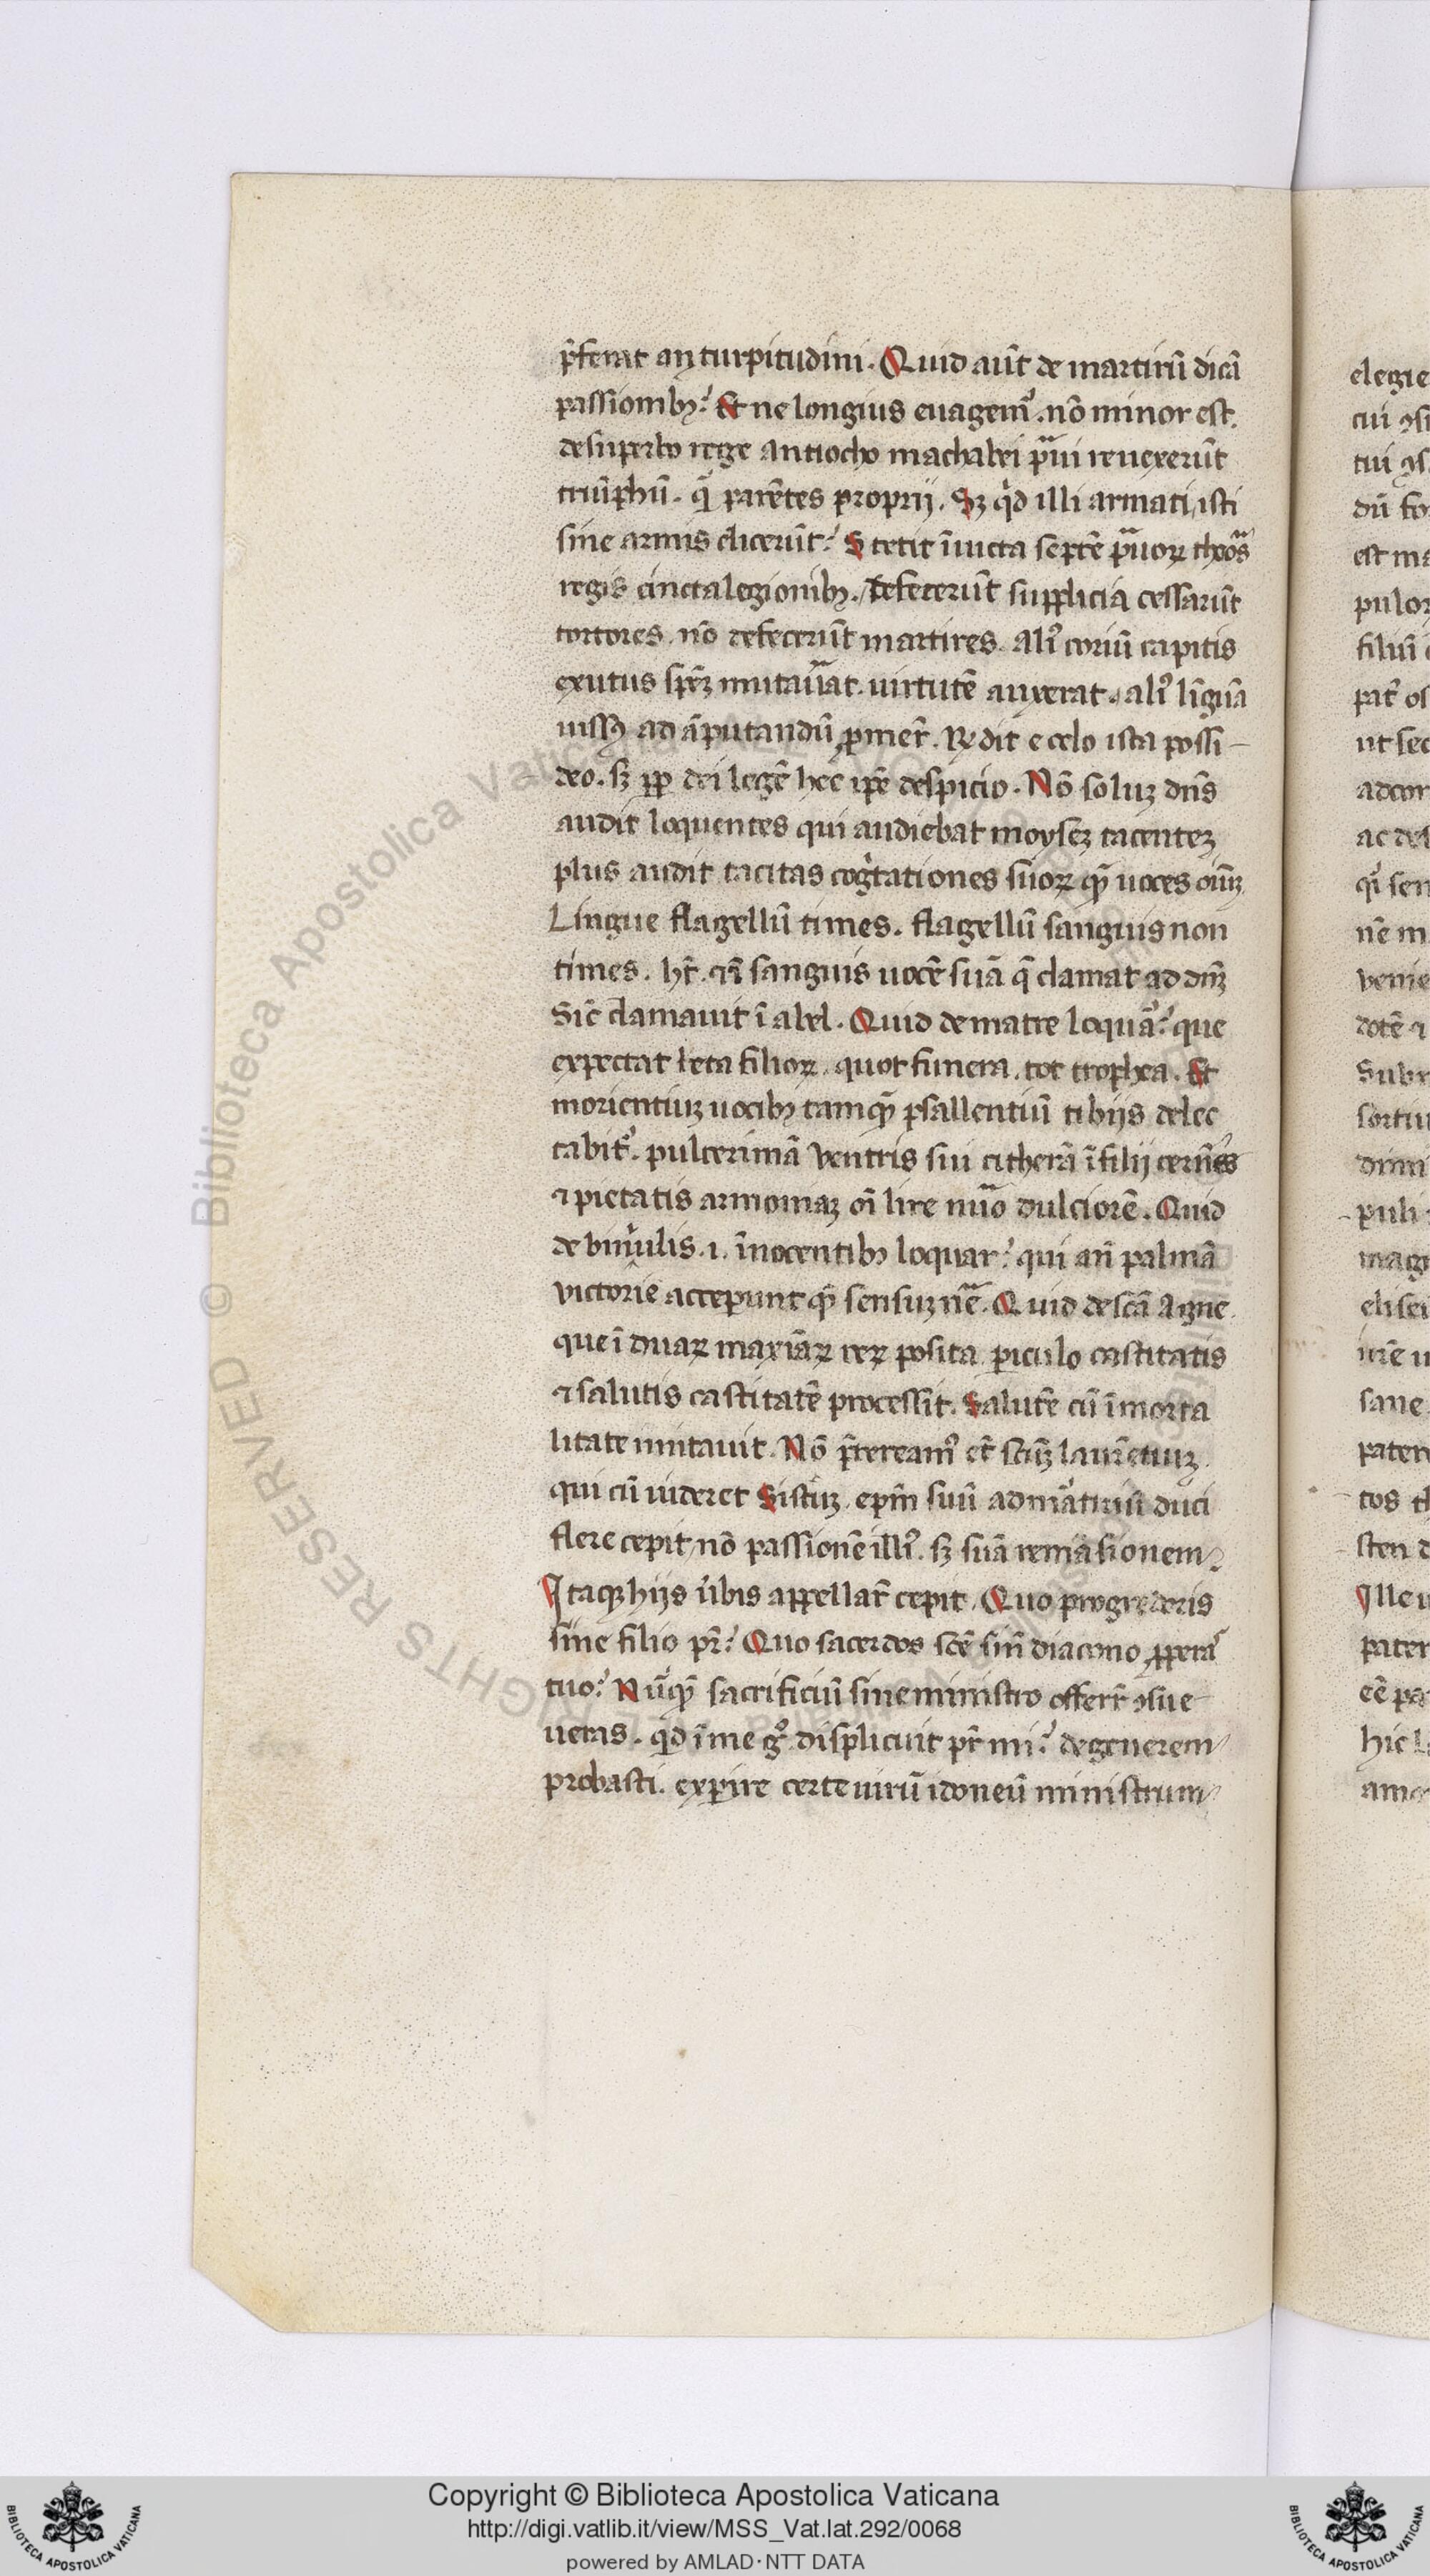 p̄ferat an turpitudini. Quid aūt de martirū dicā
passionibꝫ? Et ne longius euagemᷣ. nō minor est.
de superbo rege antiocho machabei pᵃui reuexerūt
triūphū. qᷓ parētes proprij. Sꝫ qͥd illi armati, isti
sine armis elicerūt? Stetit īuicta septē pᵃuoꝝ
regis cincta legionibꝫ. Defecerūt supplicia cessarūt
tortores. nō defecerūt martires. aliꝰ coriū capitis
exutus spēꝫ mutauᵃat. uirtutē auxerat. aliꝰ līguā
iussꝰ ad āputandū ꝓmer̄. Rñdit e celo ista possi-
deo. sꝫ ꝓp̄ dei legē hec ip̄e despicio. Nō soluꝫ dn̄s
audit loquentes qui audiebat moyseꝫ tacenteꝫ
plus audit tacitas cogͥtationes suoꝝ qᷓ uoces oīuꝫ.
Lingue flagellū times. flagellū sanguis non
times. hꝫ. eī sanguis uocē suā qᷓ clamat ad dn̄ꝫ
Sic̄ clamauit ī abel. Quid de matre loquarᷣ? que
expectat leta filioꝝ. quot funera. tot trophea. Et
morientiuꝫ uocibꝫ tamqᷓ psallentiū tibijs delec
tabitᷣ. pulcerimā ventris sui citherā ī filij cern̄es
⁊ pietatis armoniaꝫ oī lire nuᵃo dulciorē. Quid
de bimulis .i. īnocentibꝫ loquar? qui an̄ palmā
victorie acceperunt qᷓ sensuꝫ nᵃe. Quid de sc̄a Agne.
que ī duaꝝ maxīaꝝ reꝝ posita periculo castitatis
⁊ salutis castitatē processit. Salutē cū īmorta
litate mutauit. Nō p̄tereamꝰ et̄ sc̄m̄ laurētiuꝫ.
qui cū uideret Sistuꝫ. ep̄m suū ad mͣtirisi duci
flere cepit, nō passionē illiꝰ. sꝫ suā remāsionem.
Itaqꝫ hijs ūbis appellar̄ cepit. Quo progrederis
sine filio pr̄? Quo sacerdos sc̄e sin̄ diacono ꝓpera
tuo? Nūqᷓ sacrificiū sine ministro offerr̄ ꝯsue
ueras. qͥd ī me gͦ displicuit pr̄ mi? degenerem
probasti. experire certe uirū idoneū ministrum